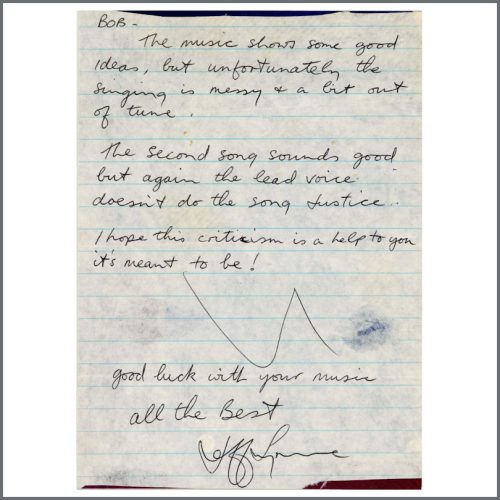 BOB -
The music shows some good
Ideas, but unfortunately the
singing is messy & a bit out
of tune.
The second song sounds good
but again the lead voice
doesn't do the song Justice..
I hope this criticism is a help to you
it's meant to be!
good luck with your music
all the Best
Jeff Lynne